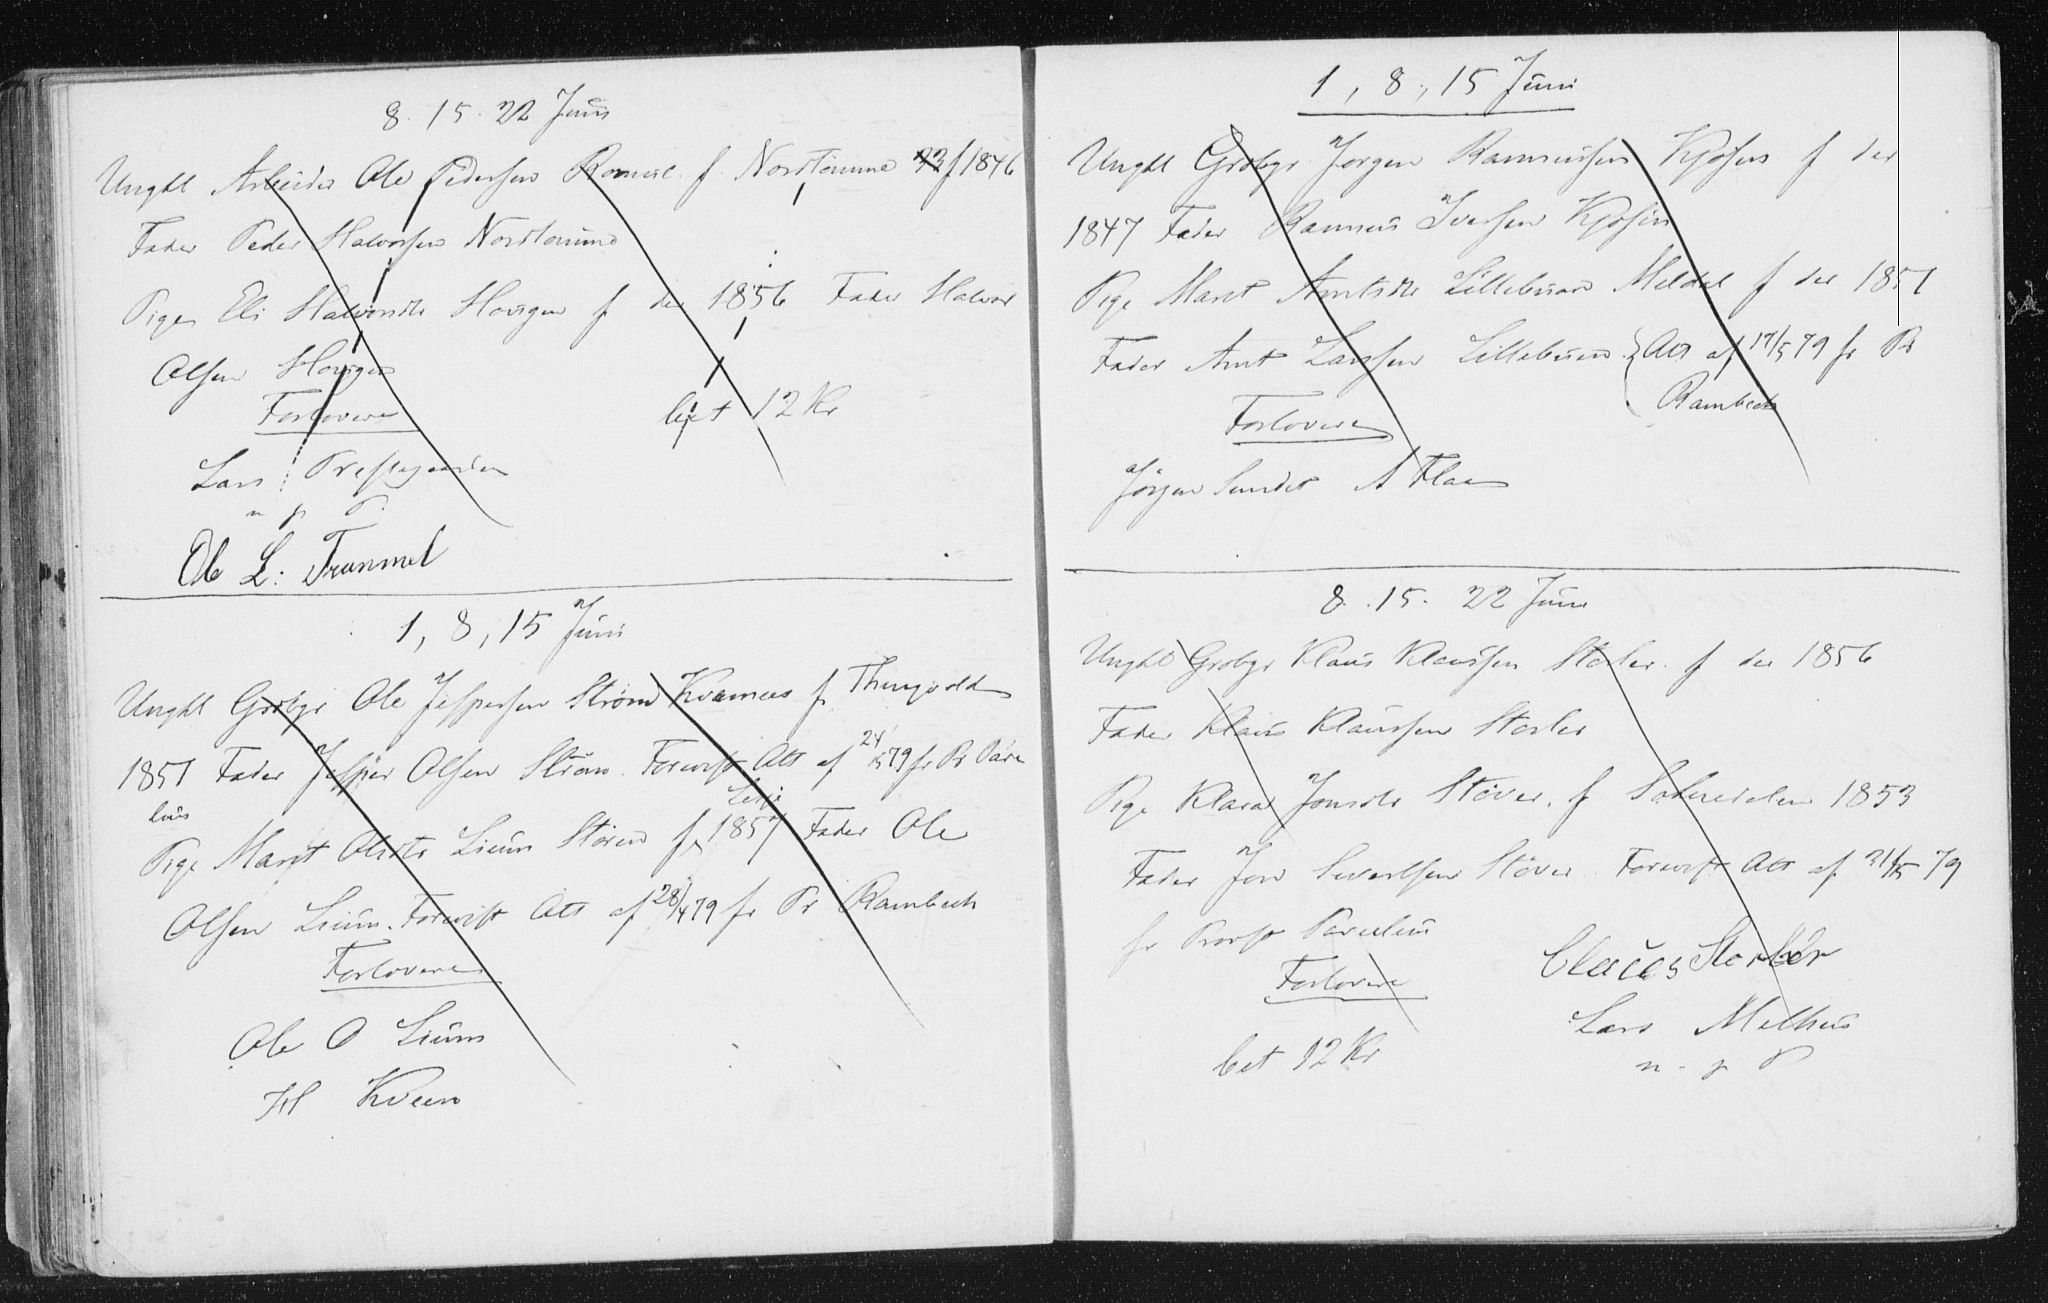 8. 15. 22 Juni
Ungkl Arbeider Ole Pedersen f. Nordtømme f 1846
Fader Peder Halvorsen Nordtømme
Pige Eli Halvorsdtr Hougen f der 1856 Fader Halvor
Olsen Hougen
Forlovere bet 12 Kr
Lars Præstegaarden
m p P.
Ole L: Trummel
1, 8, 15 Juni
Ungkl Grdbgr Ole Jespersen Strøm Kvamees f
1851 Fader Jesper Olsen Strøm. Att af 24/5 79 fr Pr Pare
lius
Pige Marit Olsdtr Lium Støren f 1857 Fader Ole
Olsen Lium. Att af 28/4 79 fr Pr Rambech
Forlovere
Ole O Lium
H Kveen
1, 8, 15 Juni
Ungkl Grdbgr Jørgen Rasmussen Kjøsen f der
1847 Fader Rasmus Iversen Kjøsen
Pige Marit Arntsdtr Lillebuan Meldal f der 1851
Fader Arnt Larsen Lillebuan Att af 17/5 79 fr Pr
Rambech
Forlovere
Jørgen Sundet A Flaa
8. 15. 22 Juni
Ungkl Grdbgr Klaus Klaussen Storler f der 1856
Fader Klaus Klaussen Storler
Pige Klara Jonsdtr Støver. f Soknedalen 1853
Fader Jon Sivertsen Støver Att af 31/5 79
fr Provst Parelius
Forlovere
Lars Melhus
bet 12 Kr
m. p P